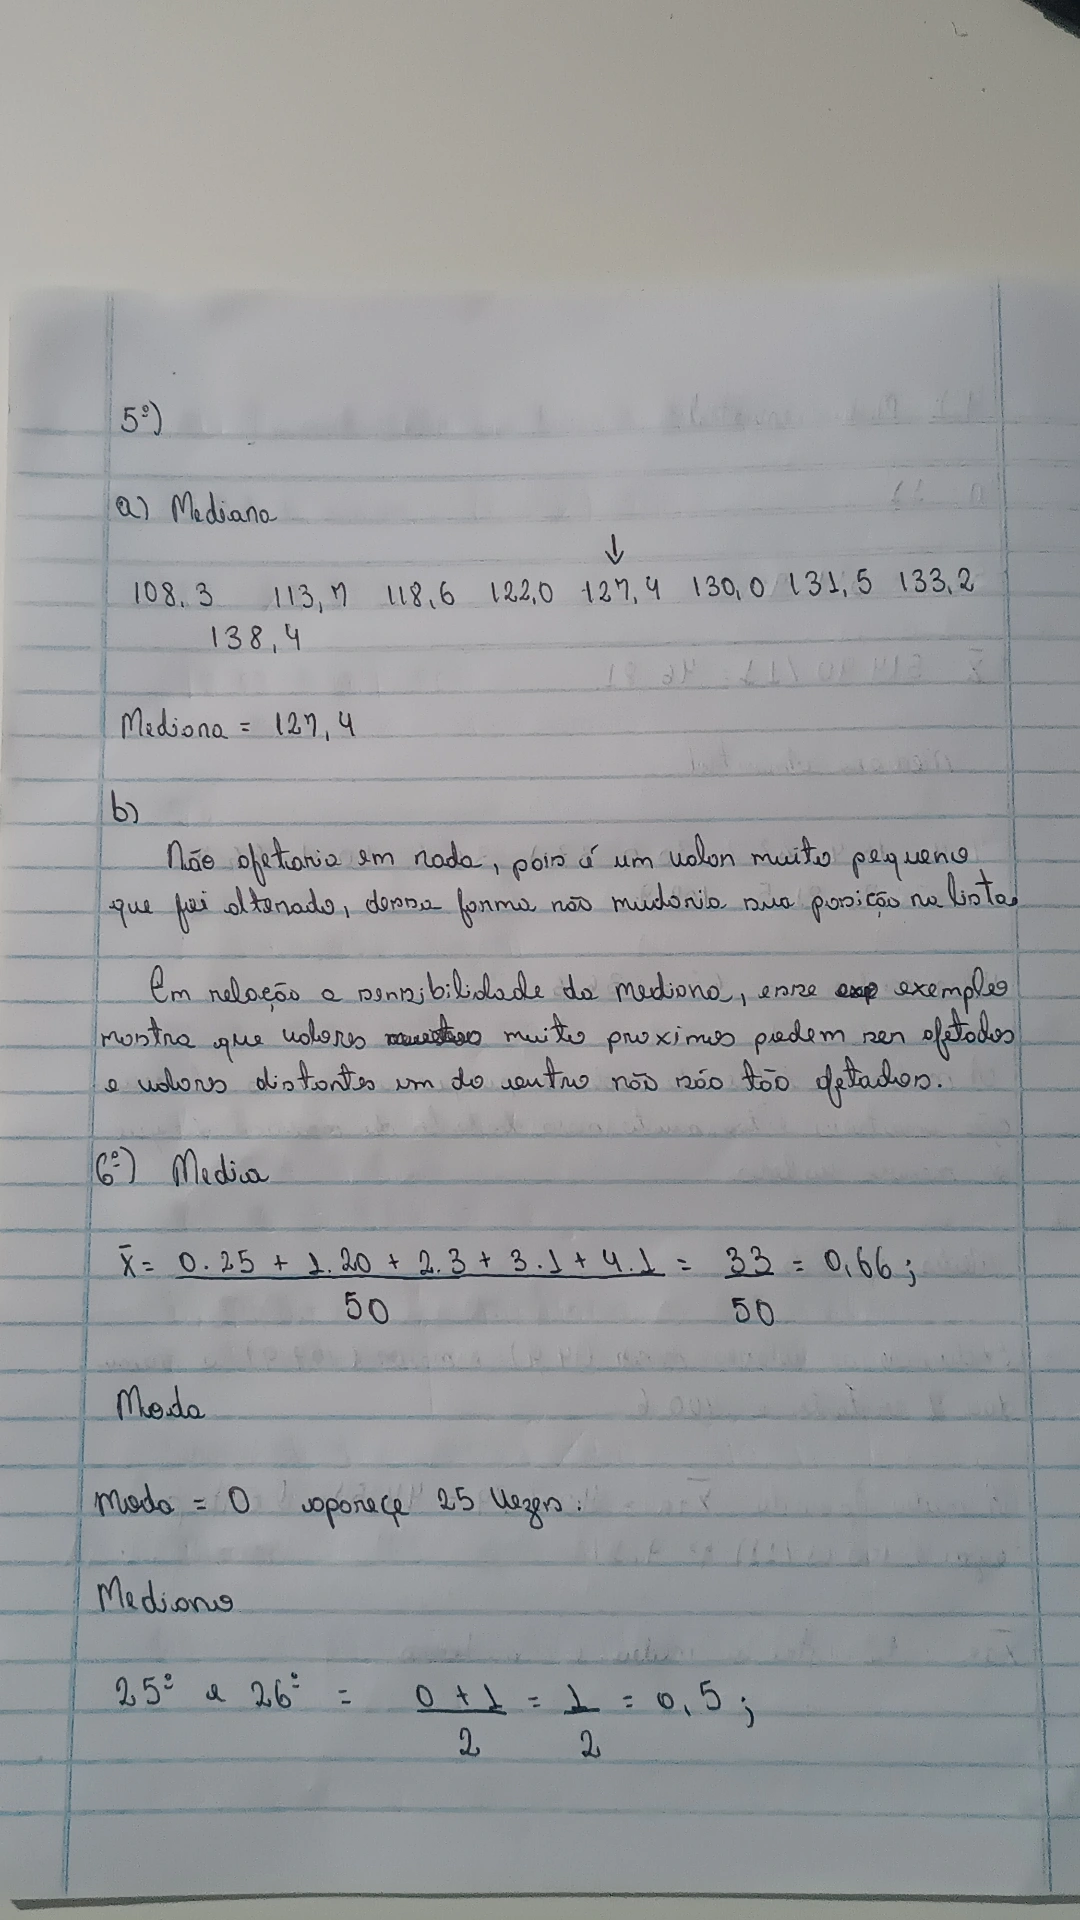 5º)
a) Mediana
↓
108,3 113,7 118,6 122,0 127,4 130,0 131,5 133,2
138,4
Mediana = 127,4
b)
Não afetaria em nada, pois é um valor muito pequeno
que foi alterado, dessa forma não mudaria sua posição na lista.
Em relação a sensibilidade da mediana, esse exemplo
mostra que valores muito proximos podem ser afetados
e valores distantes um do centro não são tão afetados.
6º) Media
x̄ = 0.25 + 1.20 + 2.3 + 3.1 + 4.1 = 33 = 0,66;
50 50
Moda
Moda = 0 apareçe 25 Vezes.
Mediana
25º e 26º = 0 + 1 = 1 = 0,5;
2 2